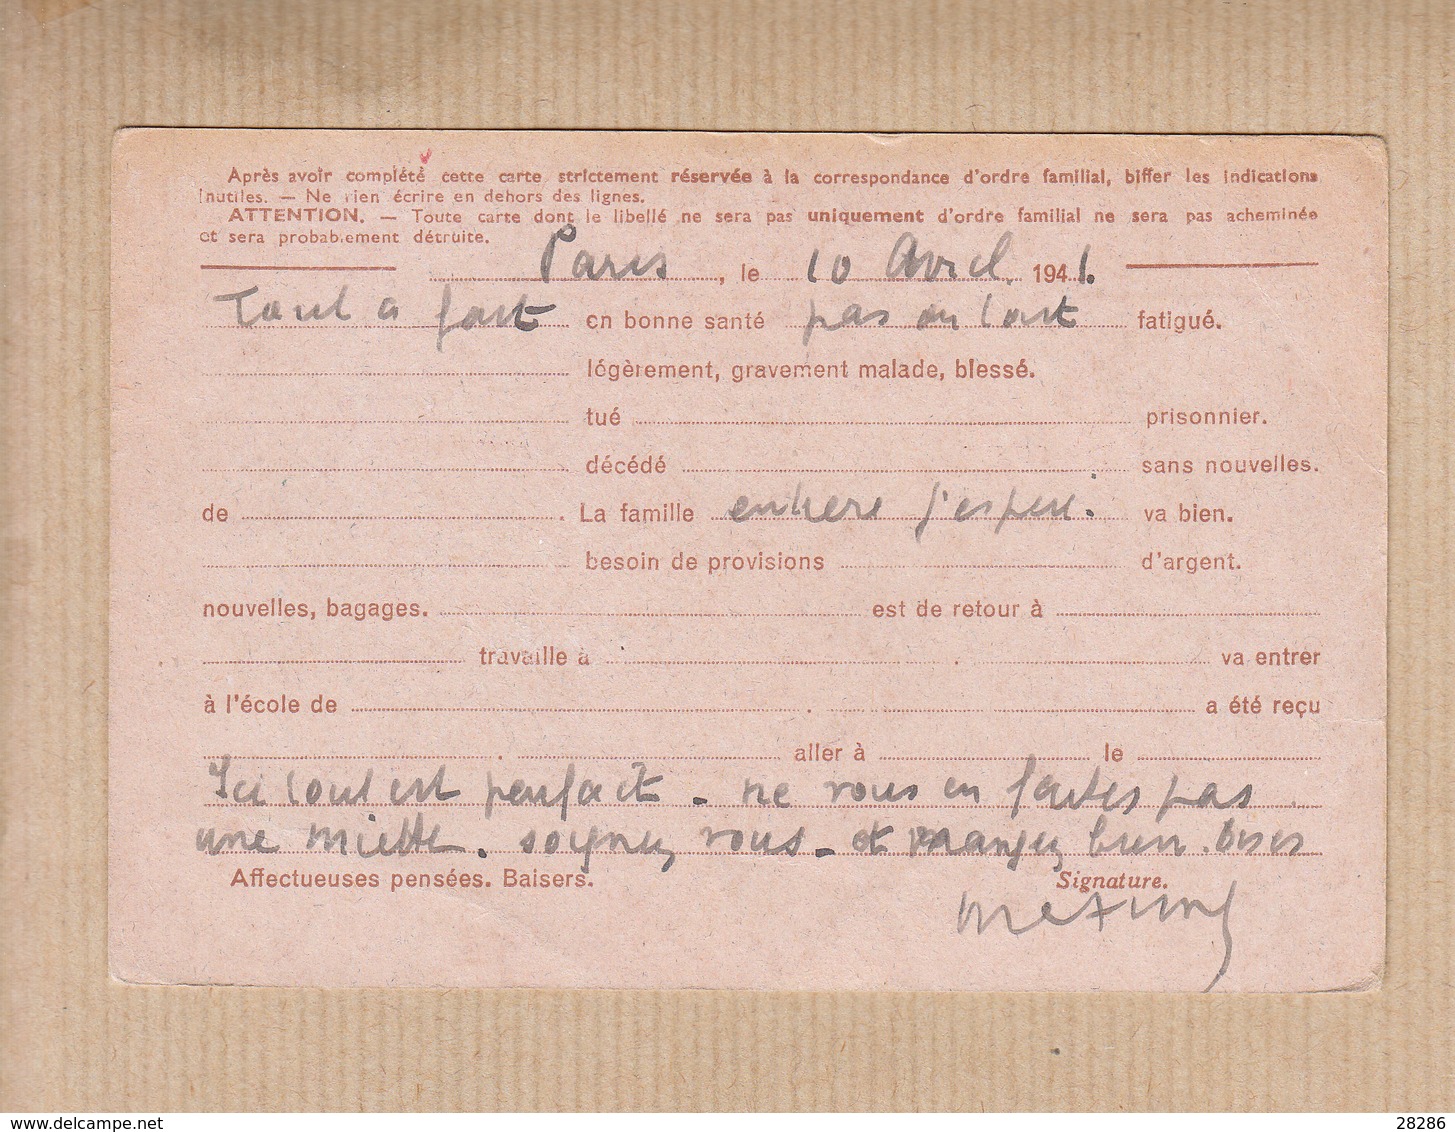 Après avoir complété cette carte strictement réservée à la correspondance d'ordre familial, biffer les indications
inutiles. — Ne rien écrire en dehors des lignes.
ATTENTION. — Toute carte dont le libellé ne sera pas uniquement d'ordre familial ne sera pas acheminée
et sera probablement détruite.
Paris, le 10 Avril 1941.
Tout a fait en bonne santé pas du tout fatigué.
légèrement, gravement malade, blessé.
tué prisonnier.
décédé sans nouvelles.
de . La famille entiere j'espere. va bien.
besoin de provisions d'argent.
nouvelles, bagages. est de retour à
travaille à . va entrer
à l'école de . a été reçu
. aller à le
Ici tout est parfait - ne vous en faites pas
une miette. soignez vous - et mangez bien.
Affectueuses pensées. Baisers. Signature.
delcampe.net
28286